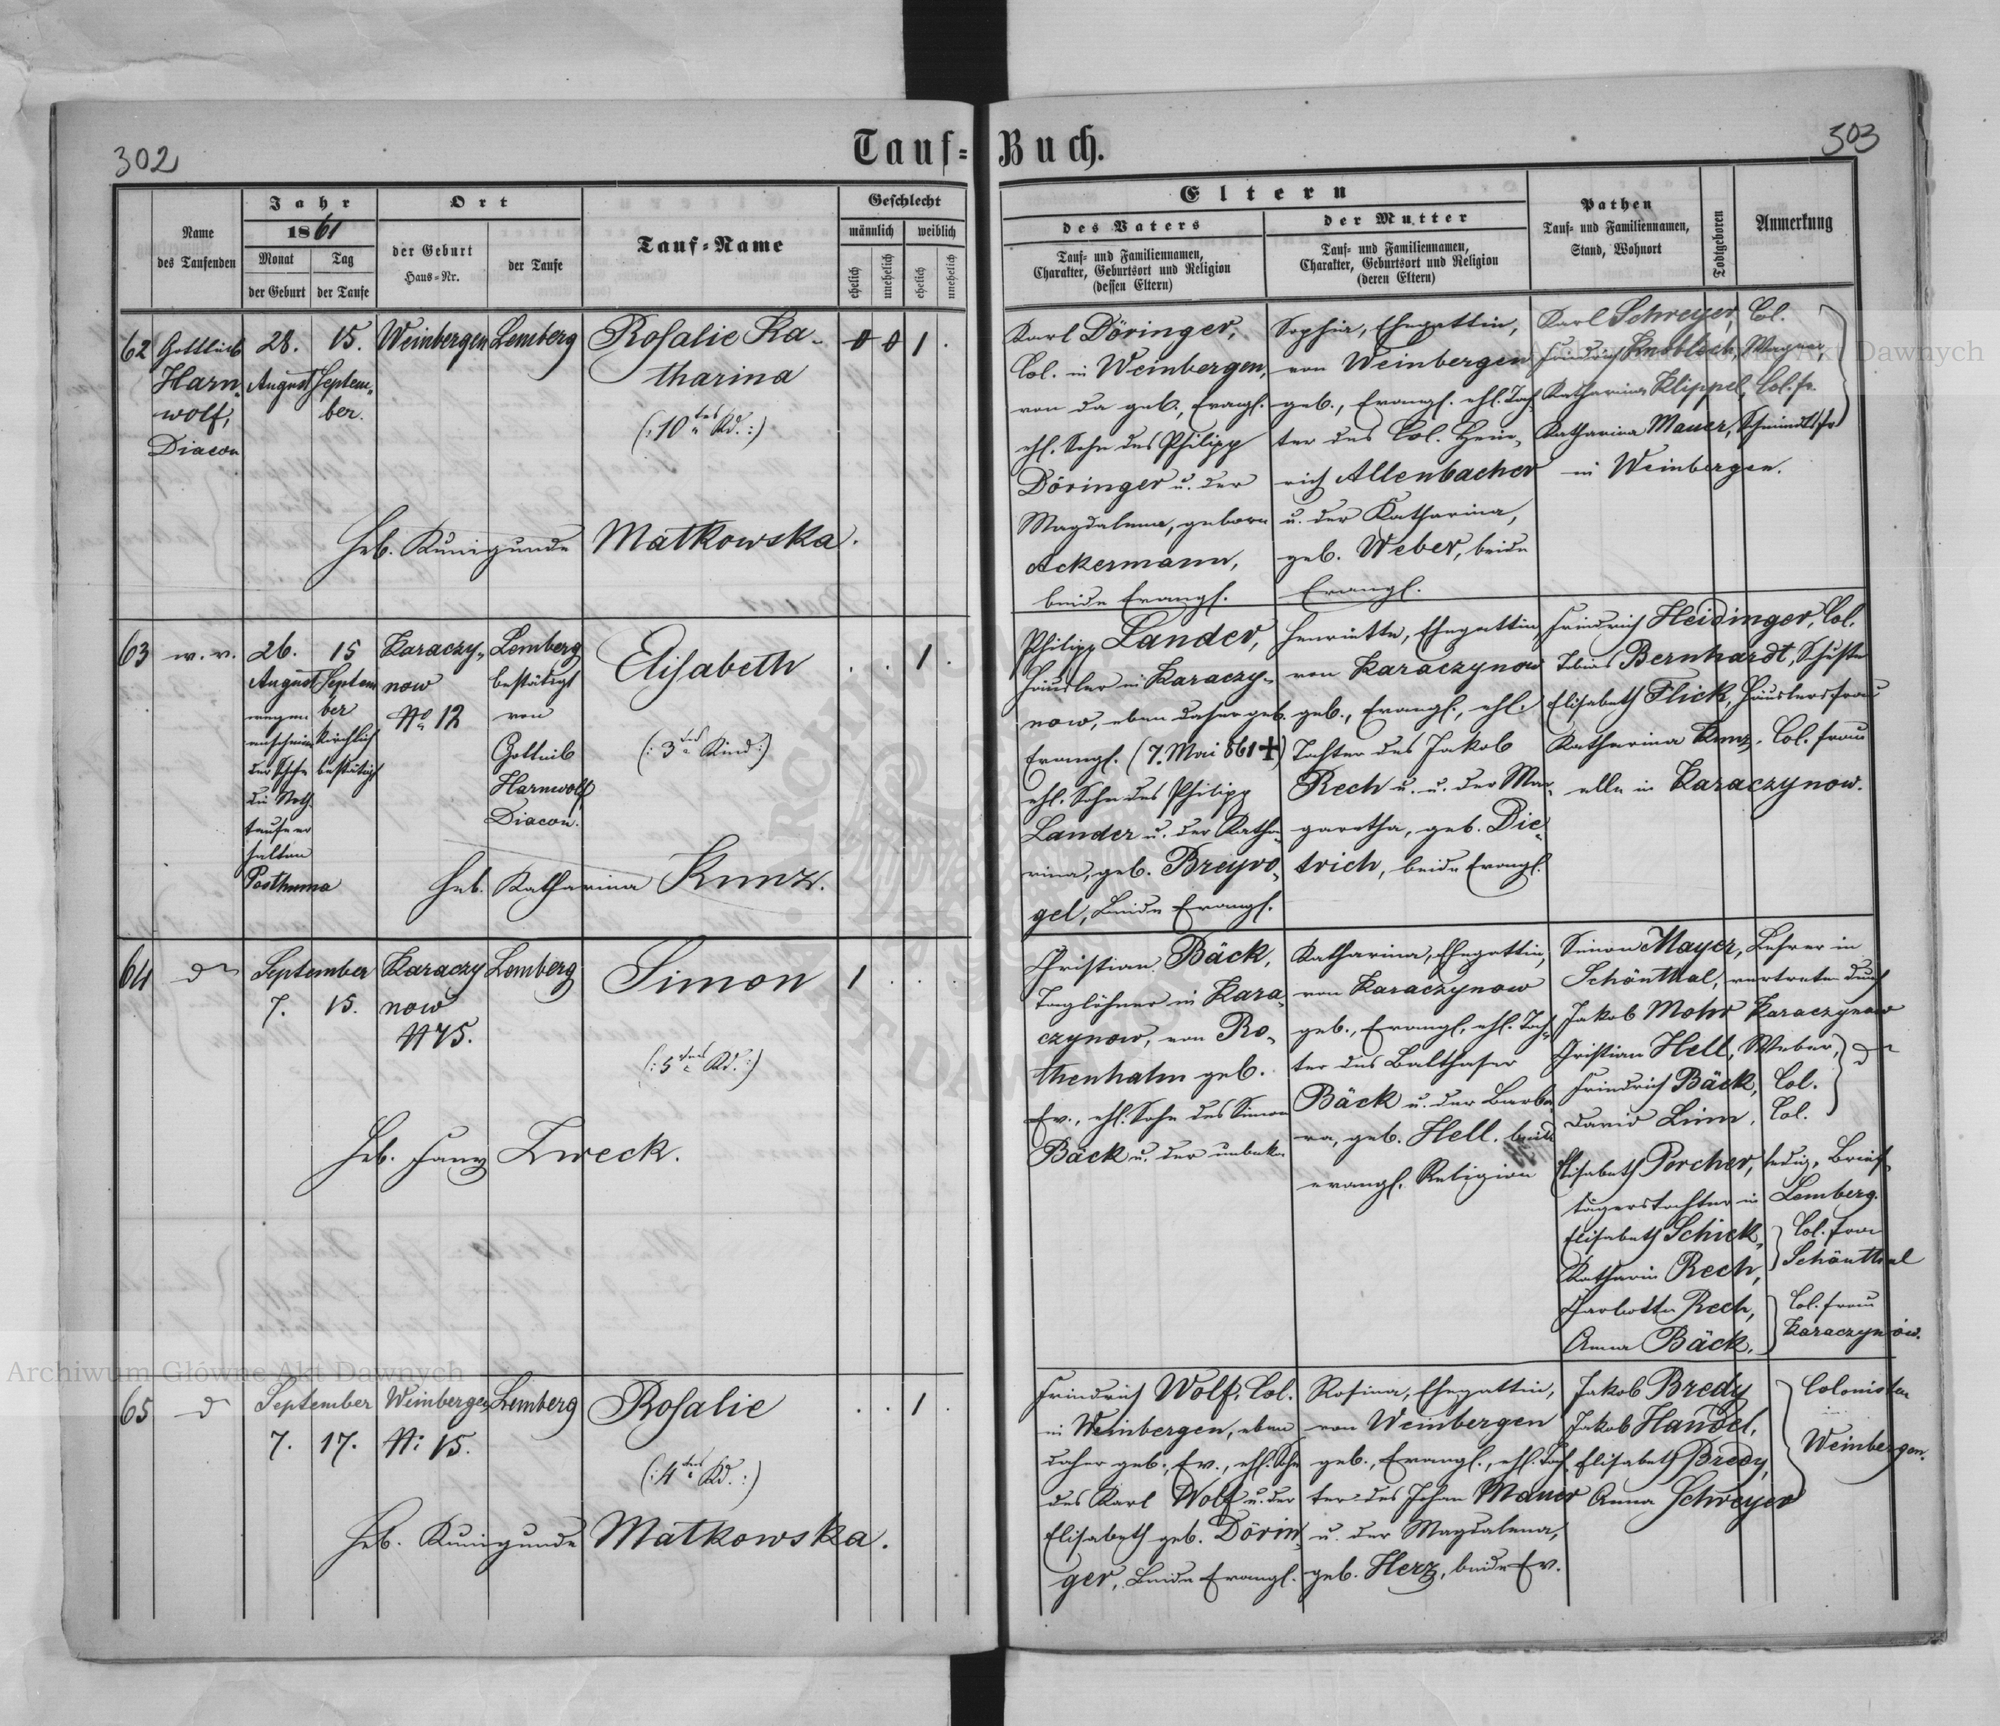 302
Tauf-Buch.
303
Name
des Taufenden
Jahr
1861
Monat
Tag
der Geburt
der Taufe
Ort
der Geburt
Haus-Nr.
der Taufe
Tauf-Name
Geschlecht
männlich
weiblich
ehelich
unehelich
ehelich
unehelich
Eltern
des Vaters
Tauf- und Familiennamen,
Charakter, Geburtsort und Religion
(dessen Eltern)
der Mutter
Tauf- und Familiennamen,
Charakter, Geburtsort und Religion
(deren Eltern)
Pathen
Tauf- und Familiennamen,
Stand, Wohnort
Todtgeboren
Anmerkung
62
Gottlieb
Harn-
wolf,
Diacon
28.
August
15.
Septem-
ber.
Weinbergen
Lemberg
Rosalie Ka-
tharina
(:10tes Kd.:)
0 0 1 .
Heb. Kunigunde Matkowska.
Karl Döringer,
Col. in Weinbergen,
von da geb., Evangl.
ehl. Sohn des Philipp
Döringer u. der
Magdalena, geborn
Ackermann,
beide Evangl.
Sophia, Ehegattin,
von Weinbergen
geb., Evangl. ehl. Toch-
ter des Col. Hein-
rich Allenbacher
u. der Katharina,
geb. Weber, beide
Evangl.
Karl Schreyer, Col.
Friedrich Knobloch, Wagner
Katharina Klippel, Col. fr.
Katharina Mauer, Schmiedtsfr
in Weinbergen.
63
w. v.
26.
August
wegen
der
die Noth
taufe er
halten
Posthuma
15
Septem
ber
kirchlich
bestätigt
Karaczy-
now
No 12
Lemberg
bestätigt
von
Gottlieb
Harnwolf
Diacon.
Elisabeth
(:3tes Kind:)
. . 1 .
Heb. Katharina Kunz.
Philipp Lander,
Häusler in Karaczy-
now, eben daher geb.
Evangl. (7. Mai 861 ✝)
ehl. Sohn des Philipp
Lander u. der Katha-
rina, geb. Breyvo-
gel, beide Evangl.
Henriette, Ehegattin
von Karaczynow
geb., Evangl., ehl.
Tochter des Jakob
Rech u. u. der Mar-
garetha, geb. Die-
trich, beide Evangl.
Friedrich Heidinger, Col.
Tobias Bernhardt, Schuster
Elisabeth Flick, Häuslersfrau
Katharina Kunz, Col. frau
alle in Karaczynow.
64
do
September
7. 15.
Karaczy
now
N 75.
Lemberg
Simon
(:5tes Kd.:)
1 . . .
Heb. Fany Zweck.
Christian Bäck,
Taglöhner in Kara-
czynow, von Ro-
thenhahn geb.
Ev., ehl. Sohn des Simon
Bäck u. der unbek.
Katharina, Ehegattin,
von Karaczynow
geb., Evangl., ehl. Toch-
ter des Balthaser
Bäck u. der Barba-
ra, geb. Hell. beide
evangl. Religion
Simon Mayer, Lehrer in
Schönthal, vertreten durch
Jakob Mohr Karaczynow
Christian Hell, Weber, do
Friedrich Bäck, Col.
David Linn, Col.
Elisabeth Porcher, ledig, Brief-
trägerstochter in Lemberg.
Elisabeth Schick, Col. frau
Katharin Rech, Schönthal
Charlotte Rech, Col. frau
Anna Bäck, Karaczynow.
65
do
September
7. 17.
Weinbergen
N: 15.
Lemberg
Rosalie
(:4tes Kd.:)
. . 1 .
Heb. Kunigunde Matkowska.
Friedrich Wolf, Col.
in Weinbergen, eben
daher geb., Ev., ehl. Sohn
des Karl Wolf u. der
Elisabeth geb. Dörin-
ger, beide Evangl.
Rosina, Ehegattin,
von Weinbergen
geb., Evangl., ehl. Toch-
ter des Johan Mauer
u. der Magdalena,
geb. Herz, beide Ev.
Jakob Bredy
Jakob Handel,
Elisabeth Bredy,
Anna Schreyer
Colonisten
Weinbergen.
Archiwum Główne Akt Dawnych
Archiwum Główne Akt Dawnych